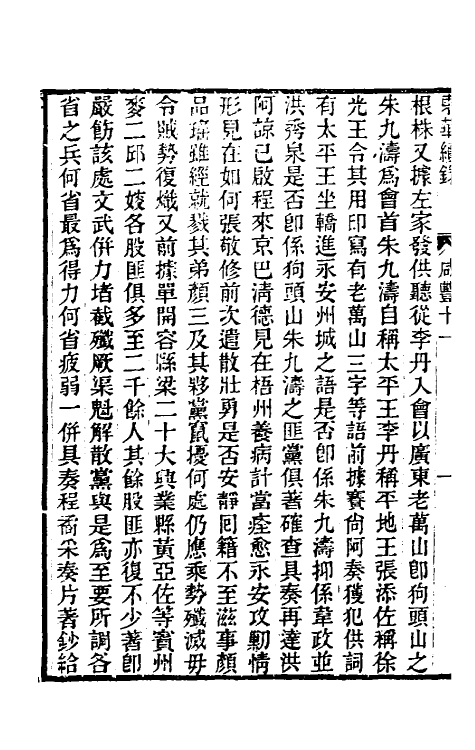 東華續錄 咸豐十一 一
根株又據左家發供聽從李丹入會以廣東老萬山卽狗頭山之
朱九濤爲會首朱九濤自稱太平王李丹稱平地王張添佐稱徐
光王令其用印寫有老萬山三字等語前據賽尙阿奏獲犯供詞
有太平王坐轎進永安州城之語是否卽係朱九濤抑係韋政並
洪秀泉是否卽係狗頭山朱九濤之匪黨俱著確查具奏再達洪
阿諒已啟程來京巴淸德見在梧州養病計當痊愈永安攻勦情
形見在如何張敬修前次遣散壯勇是否安靜回籍不至滋事顏
品瑤雖經就戮其弟顏三及其夥黨竄擾何處仍應乘勢殲滅毋
令賊勢復熾又前據單開容縣梁二十大興業縣黃亞佐等賓州
麥二邱二嫂各股匪俱多至二千餘人其餘股匪亦復不少著卽
嚴飭該處文武倂力堵截殲厥渠魁解散黨與是爲至要所調各
省之兵何省最爲得力何省疲弱一倂具奏程矞采奏片著鈔給